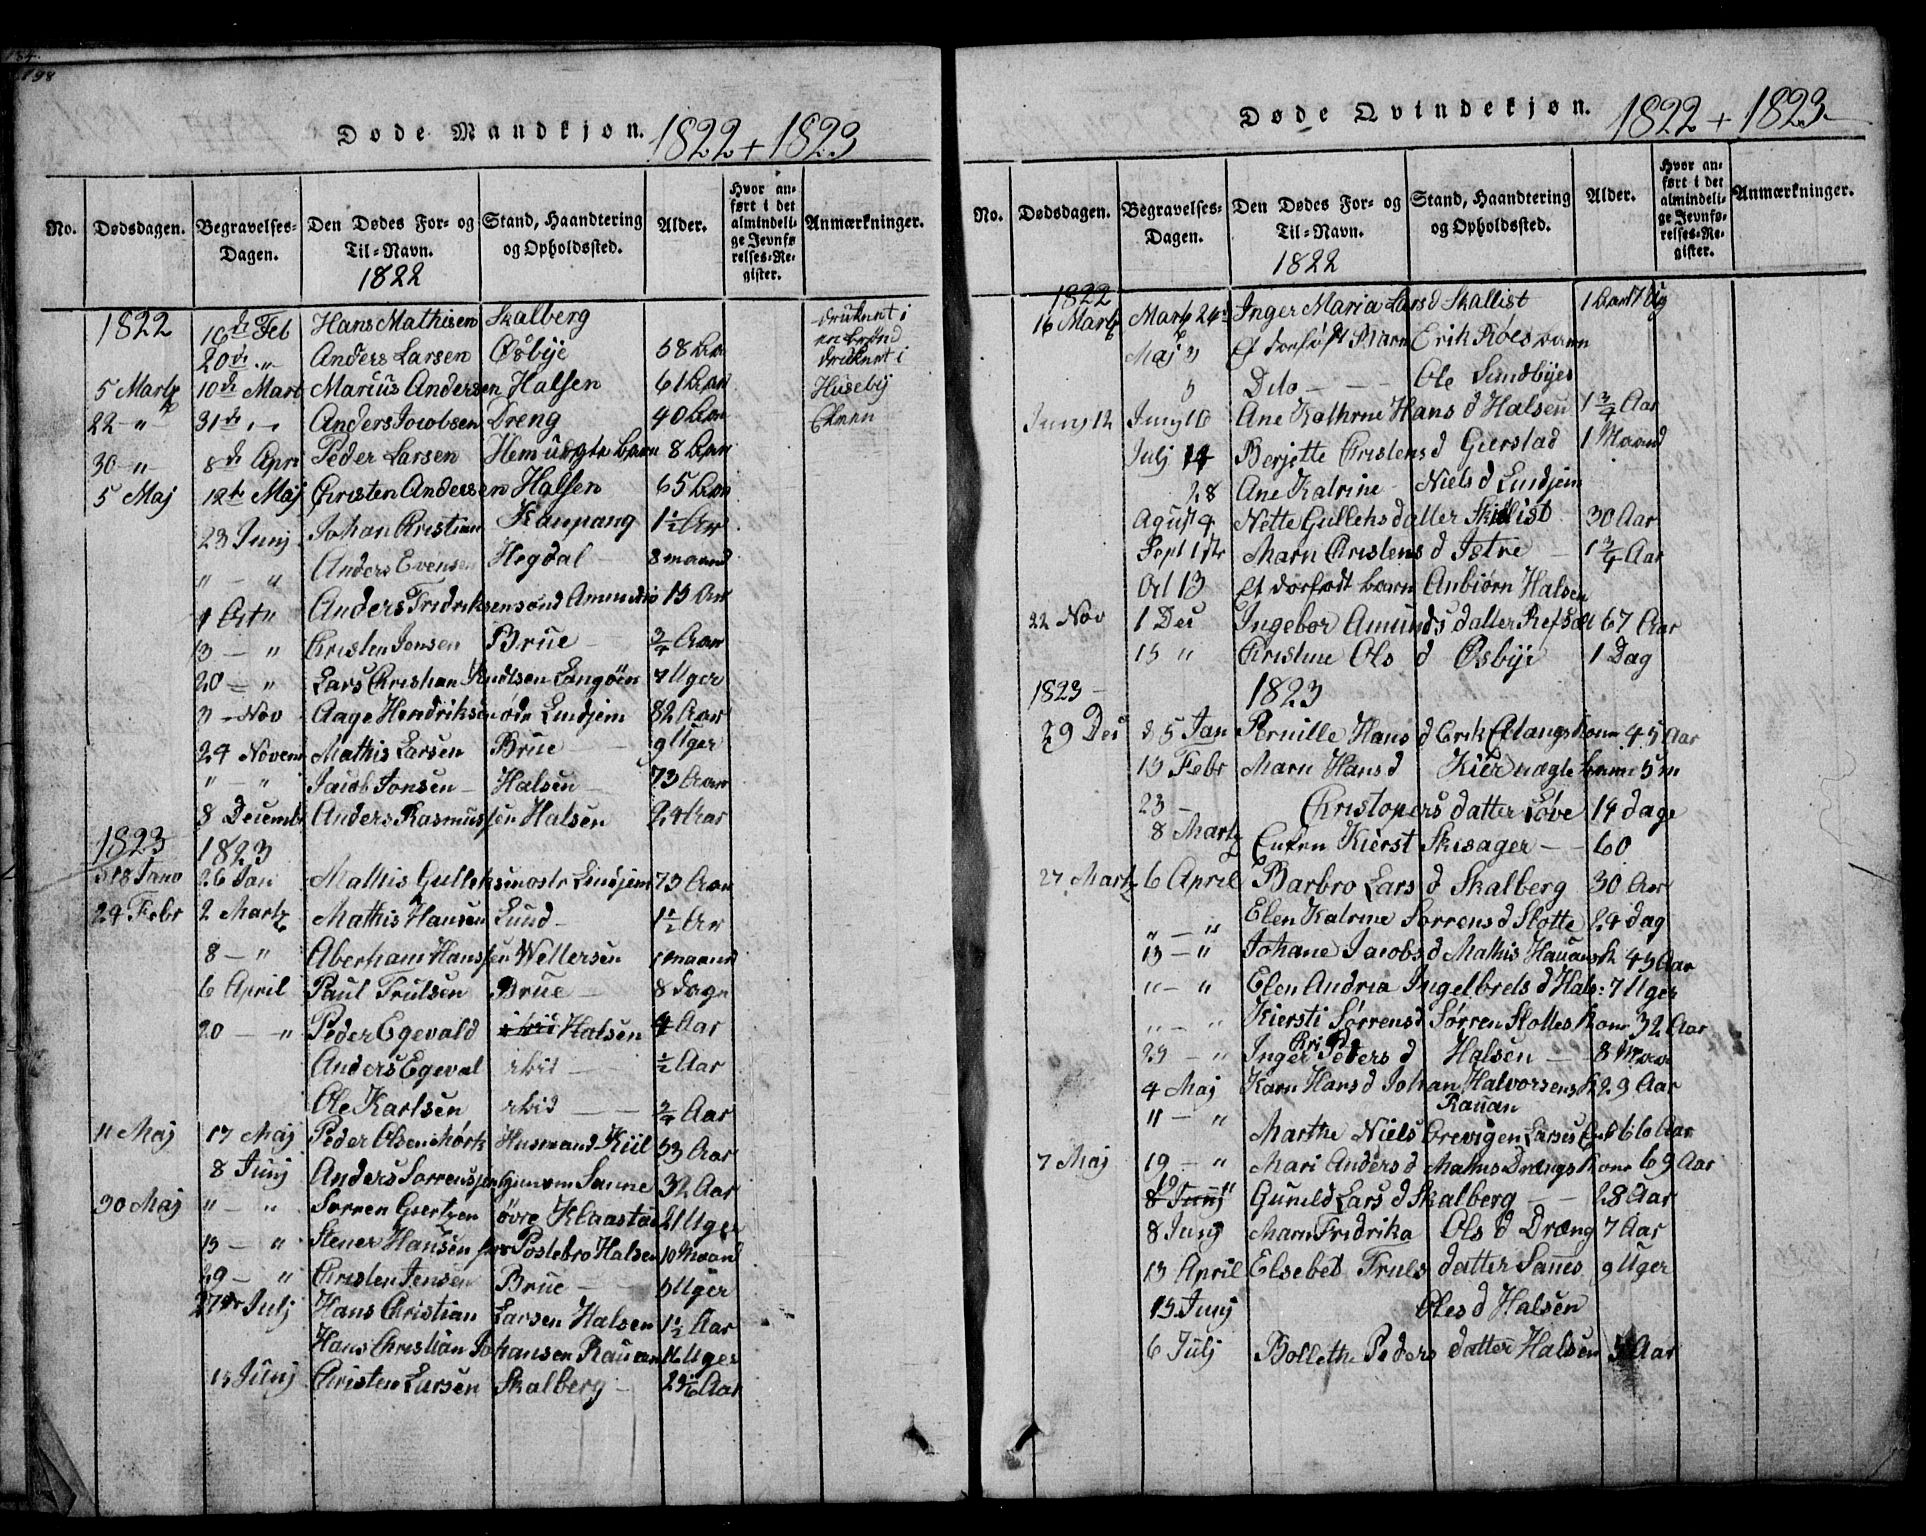 198
Døde Mandkjøn. 1822 + 1823
No. Dødsdagen. Begravelses-Dagen. Den Dødes For- og Til-Navn. Stand, Haandtering og Opholdssted. Alder. Hvor anført i det almindelige Jevnførelses-Register. Anmærkninger.
1822
1822 16 de Feb Hans Mathisen Skalberg druknet i en brønd
20 de „ Anders Larsen Øsbye 58 Aar druknet i
5 Martz 10 de Mart Marius Andersen Halsen 61 Aar Huseby
22 „ 31 te „ Anders Jacobsen Dreng 40 Aar Elven
30 „ 8 de Apri Peder Larsen Hem barn 8 Aar
5 Maj 12te Maj Christen Andersen Halsen 65 Aar
23 Junj Johan Christian Kaupang 1½ Aar
„ – „ Anders Evensen Hegdal 8 maaned
Anders Fridriksen 15 Aar
13 – „ Christen Jensen Brue ¾ Aar
20 – „ Lars Christian Knudsen Langøen 7 Uger
3 – Nov Aage Hendriksen Lindjem 82 Aar
24 Novem Mathis Larsen Brue 9 Uger
„ – „ Jacob Jonsen Halsen – 73 Aar
8 Decembr Anders Rasmussen Halsen 24 Aar
1823 1823
18 Janv 26 Jan Mathis Gulleksen Lindjem 73 Aar
24 Febr 2 Martz Mathis Hansen Lund – 1½ Aar
8 – „ Aberham Hanssen Wellersen maaned
6 April Paul Trulsen Brue – 8 dage
20 – „ Peder Egevald Halsen 4 Aar
Anders Egeval ibid – ½ Aar
Ole Karlsen ibid – – ¾ Aar
11 Maj 17 Maj Peder Olsen Mørk Husmand Kiil 53 Aar
8 Junj Anders Sørrensen Sanne 32 Aar
30 Maj „ – „ Sørren Giertsen øvre Klaastad Uger
13 – „ Stener Hansen Postebro Halsen 10 Maan
29 – „ Christen Jensen Brue – – Uger
27de Julj Hans Christian Larsen Halsen 1½ Aar
Hans Christian Johansen Rauan Uger
15 Junj Christen Larsen Skalberg – Aar
Døde Qvindekjøn. 1822 + 1823
No. Dødsdagen. Begravelses-Dagen. Den Dødes For- og Til-Navn. Stand, Haandtering og Opholdssted. Alder. Hvor anført i det almindelige Jevnførelses-Register. Anmærkninger.
1822
1822
16 Martz Martz 24 Inger Maria Lars d Skallist 1 Aar
Maj Et dørfødt Barn Erik Roes
Dito – – Ole Sundbye
Junj 12 Junj 16 Ane Kathrne Hans d Halsen 1¾ Aar
Julj 14 Berjitte Christens d Gierstad 1 Maaned
28 Ane Katrine Niels d Lindjem
Agust 4 Nette Gulleks datter Skallist 30 Aar
Sept 1ste Marn Christens d Istre – 1¾ Aar
Oct 13 Et dørfødt barn Anbiørn Halsen
22 Nov 1 Dec Ingebor Amunds datter Refsal 67 Aar
15 „ Christine Ols d Øsbye 1 Dag
1823 – 1823
29 Dec d 5 Jan Pernille Hans d Erik kone 45 Aar
13 Febr Marn Hans d Kier 5 m
23 – Christopers datter Løve 14 dage
8 Martz Enken Kierst Skisager – – 60
27 Martz 6 April Barbro Lars d Skalberg 30 Aar
„ – „ Elen Katrine Sørrens d Slotte 24 dag
13 – „ Johane Jacobs d Mathis Hauans K 45 Aar
„ – „ Elen Andria Ingelbrets d Hals: 7 Uger
„ – „ Kiersti Sørrens d Sørren Slottes Kone 32 Aar
„ Inger Peders d Halsen – – 8
4 Maj Karn Hans d Johan Halvorsens K 29 Aar
Rauan
11 – „ Marthe Niels Larses 66 Aar
7 Maj 19 – „ Mari Anders d Drængs Kone 69 Aar
8 Junj 19 „ Gunild Lars d Skalberg – – 28 Aar
8 Junj Marn Fridrika Ols d Dræng 7 Aar
13 April Elsebet Truls datter Sannes 9 Uger
15 Junj Oles d Halsen
6 Julj Bollethe Peders datter Halsen Aar